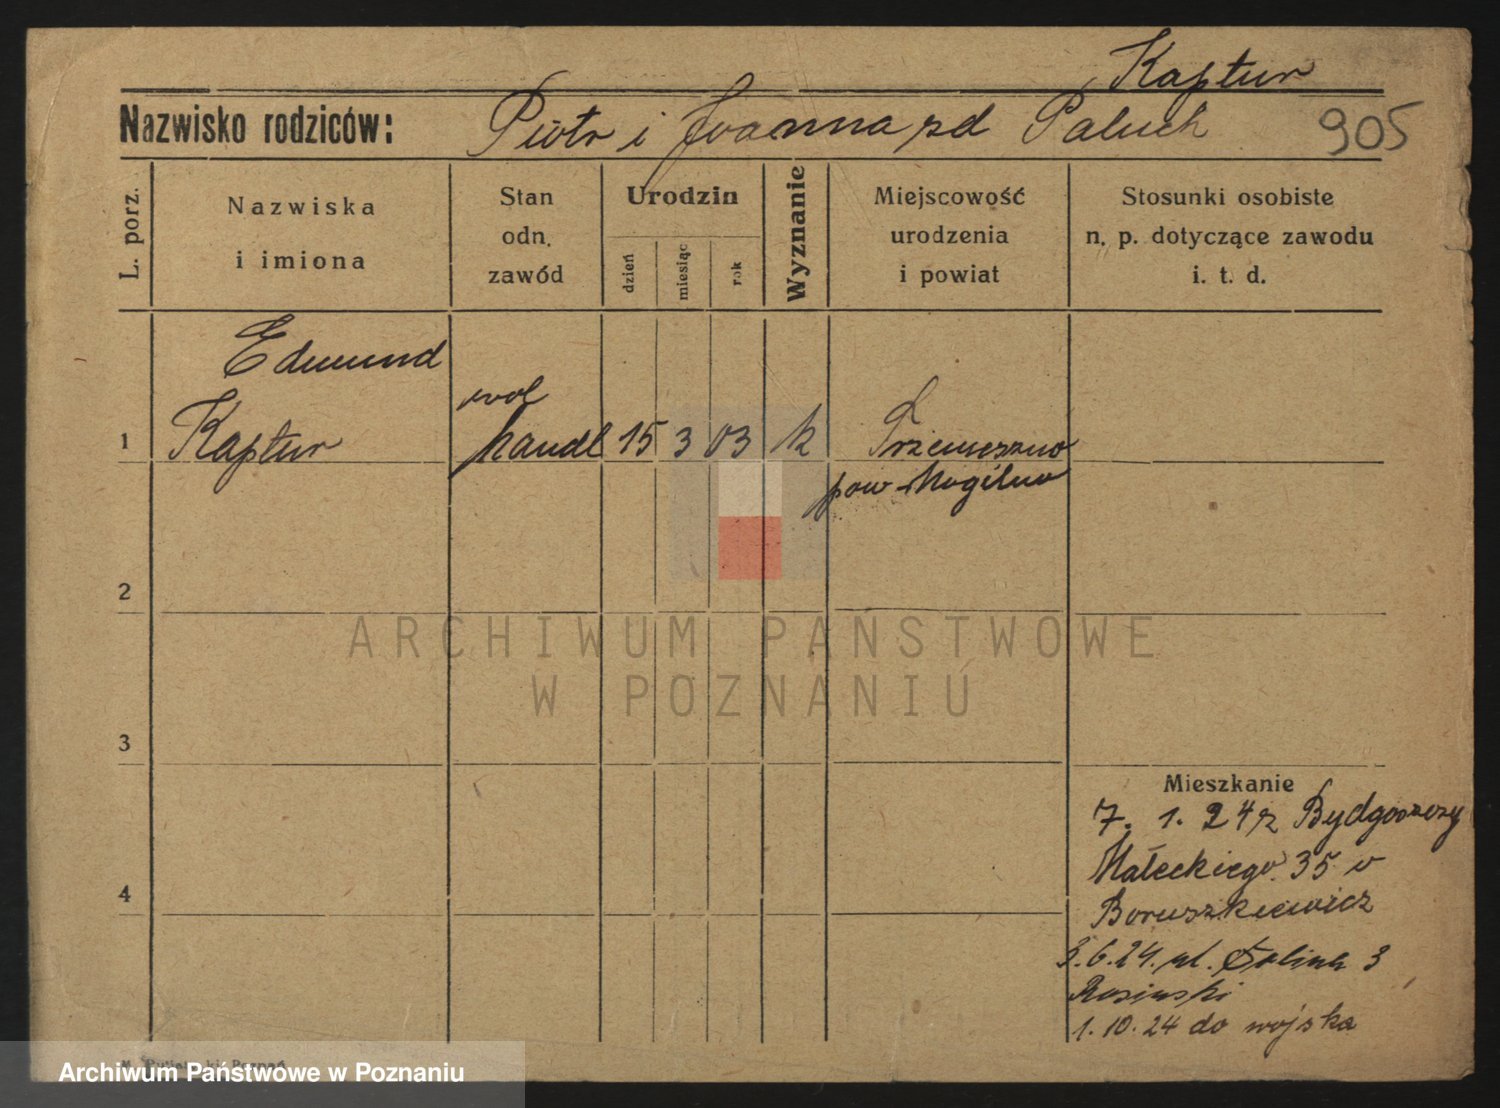 Kaptur
Nazwisko rodziców: Piotr i Joanna zd Paluch 905
L. porz.
Nazwiska
i imiona
Stan
odn.
zawód
Urodzin
dzień
miesiąc
rok
Wyznanie
Miejscowość
urodzenia
i powiat
Stosunki osobiste
n. p. dotyczące zawodu
i. t. d.
Edmund
wol
1 Kaptur handl 15 3 03 k Trzemeszno
pow Mogilno
2
ARCHIWUM PAŃSTWOWE
W POZNANIU
3
Mieszkanie
7. 1. 24 z Bydgoszczy
Małeckiego 35 u
4
Boruszkiewicz
3.6.24. ul. 3
Rosiński
1.10.24 do wojska
Archiwum Państwowe w Poznaniu